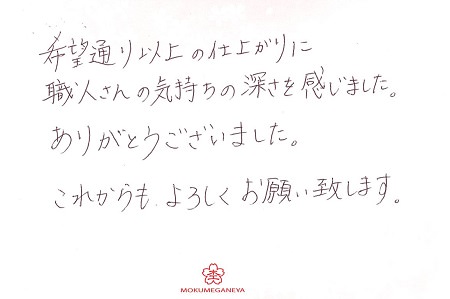 希望通り以上の仕上がりに
職人さんの気持ちの深さを感じました。
ありがとうございました。
これからも、よろしくお願い致します。
MOKUMEGANEYA